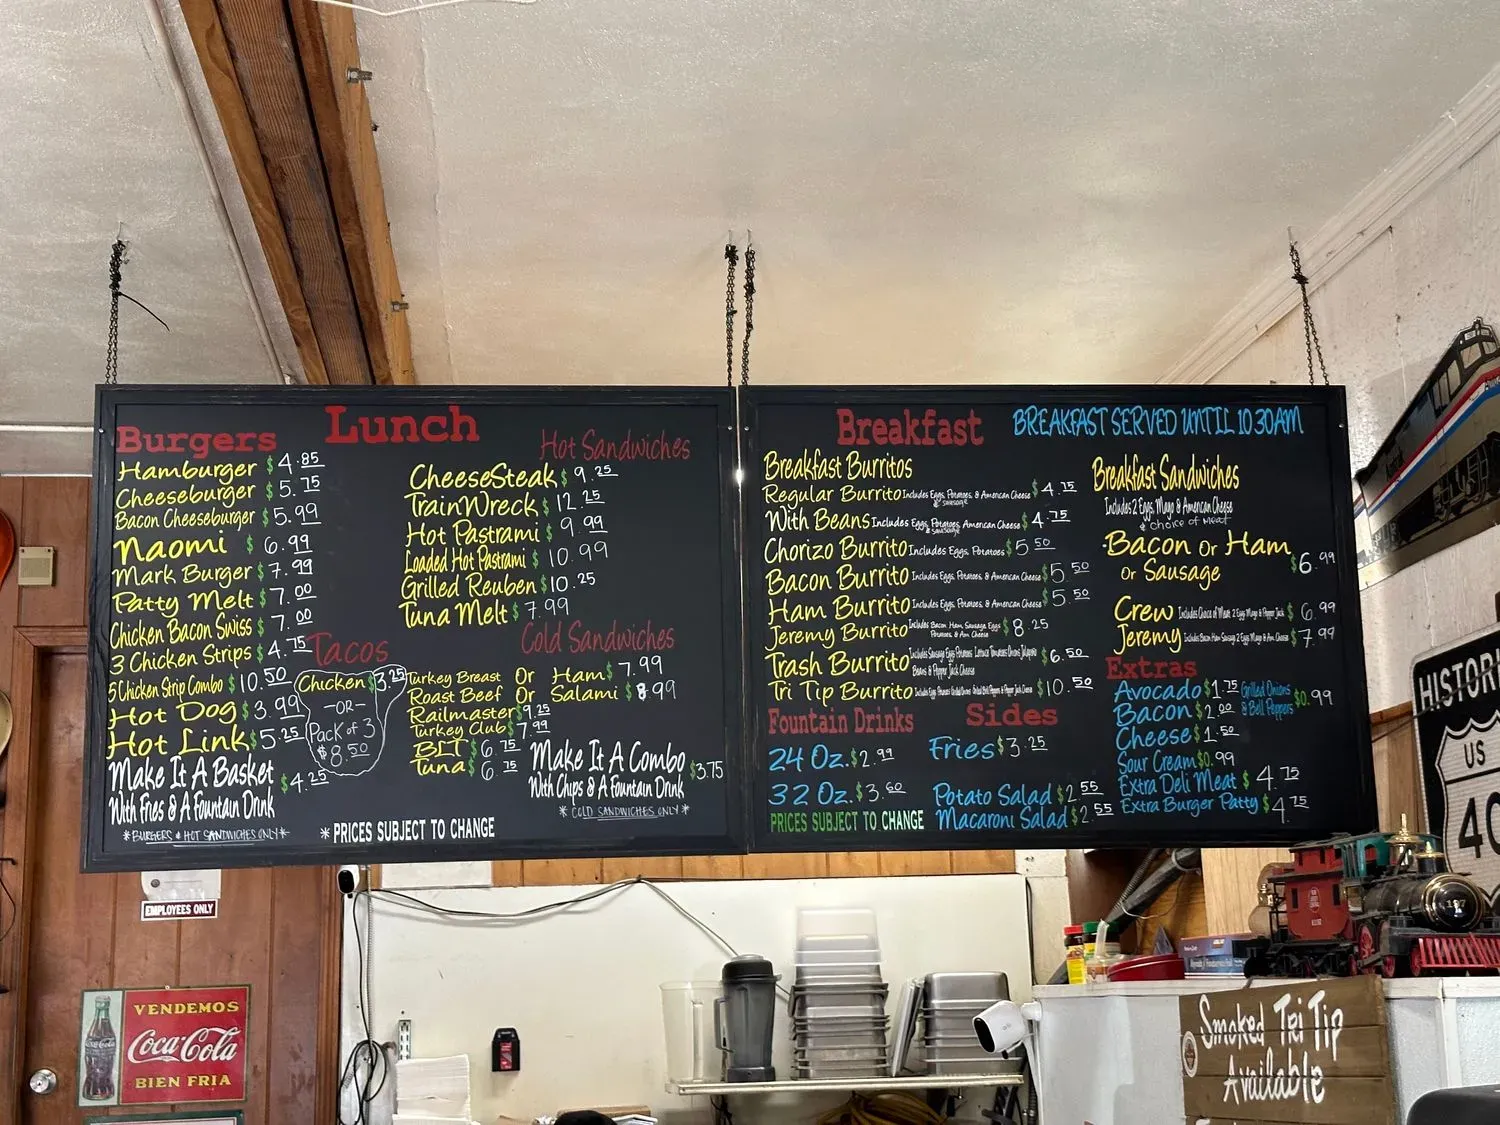 Lunch
Burgers
Hamburger $4.85
Cheeseburger $5.75
Bacon Cheeseburger $5.99
Naomi $6.99
Mark Burger $7.99
Patty Melt $7.00
Chicken Bacon Swiss $7.00
3 Chicken Strips $4.75
5 Chicken Strip Combo $10.50
Hot Dog $3.99
Hot Link $5.25
Make It A Basket
With Fries & A Fountain Drink $4.25
*BURGERS & HOT SANDWICHES ONLY*
Tacos
Chicken $3.25
-OR-
Pack of 3
$8.50
*PRICES SUBJECT TO CHANGE
Hot Sandwiches
CheeseSteak $9.25
TrainWreck $12.25
Hot Pastrami $9.99
Loaded Hot Pastrami $10.99
Grilled Reuben $10.25
Tuna Melt $7.99
Cold Sandwiches
Turkey Breast Or Ham $7.99
Roast Beef Or Salami $8.99
Railmaster $9.25
Turkey Club $7.99
BLT $6.75
Tuna $6.75
Make It A Combo
With Chips & A Fountain Drink $3.75
*COLD SANDWICHES ONLY*
Breakfast
BREAKFAST SERVED UNTIL 10:30AM
Breakfast Burritos
Regular Burrito Includes Eggs, Potatoes, & American Cheese $4.75
& SAUSAGE
With Beans Includes Eggs, Potatoes, American Cheese $4.75
& SAUSAGE
Chorizo Burrito Includes Eggs, Potatoes $5.50
Bacon Burrito Includes Eggs, Potatoes, & American Cheese $5.50
Ham Burrito Includes Eggs, Potatoes, & American Cheese $5.50
Jeremy Burrito Includes Bacon, Ham, Sausage, Eggs $8.25
Potatoes, & Am. Cheese
Trash Burrito Includes Sausage Eggs Potatoes Lettuce Tomatoes Onions Jalapeno $6.50
Beans & Pepper Jack Cheese
Tri Tip Burrito Includes Eggs Potatoes Grilled Onions Bell Peppers & Pepper Jack Cheese $10.50
Breakfast Sandwiches
Includes 2 Eggs, Mayo & American Cheese
& choice of meat
Bacon Or Ham
Or Sausage $6.99
Crew Includes Choice of Meat 2 Eggs Mayo & Pepper Jack $6.99
Jeremy Includes Bacon Ham Sausage 2 Eggs Mayo & Am. Cheese $7.99
Fountain Drinks
24 Oz. $2.99
32 Oz. $3.60
PRICES SUBJECT TO CHANGE
Sides
Fries $3.25
Potato Salad $2.55
Macaroni Salad $2.55
Extras
Avocado $1.75
Bacon $2.00
Cheese $1.50
Sour Cream $0.99
Extra Deli Meat $4.75
Extra Burger Patty $4.75
Grilled Onions
& Bell Peppers $0.99
EMPLOYEES ONLY
VENDEMOS
Coca-Cola
BIEN FRIA
HISTORIC
US
197
Smoked Tri Tip
Available